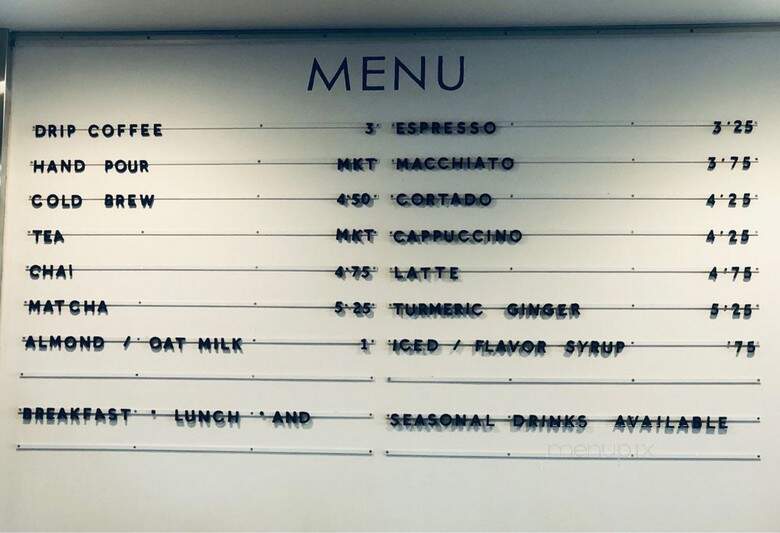 MENU
DRIP COFFEE 3
HAND POUR MKT
COLD BREW 4'50
TEA MKT
CHAI 4'75
MATCHA 5'25
ALMOND / OAT MILK 1
BREAKFAST ' LUNCH '' AND
ESPRESSO 3'25
MACCHIATO 3'75
CORTADO 4'25
CAPPUCCINO 4'25
LATTE 4'75
TURMERIC GINGER 5'25
ICED / FLAVOR SYRUP '75
SEASONAL DRINKS AVAILABLE
menupix